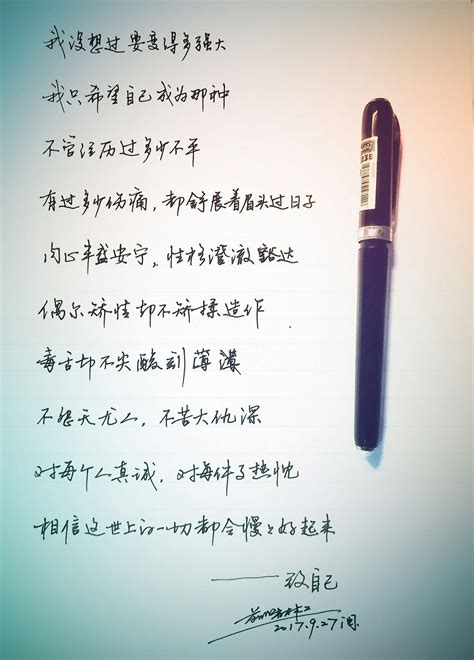 我没想过要变得多强大
我只希望自己成为那种
不管经历过多少不平
有过多少伤痛，都舒展着眉头过日子
内心丰盛安宁，性格澄澈豁达
偶尔矫情却不矫揉造作
毒舌却不尖酸刻薄
不怨天尤人，不苦大仇深
对每个人真诚，对每件事热忱
相信这世上的一切都会慢々好起来
——致自己
2017.9.27
038